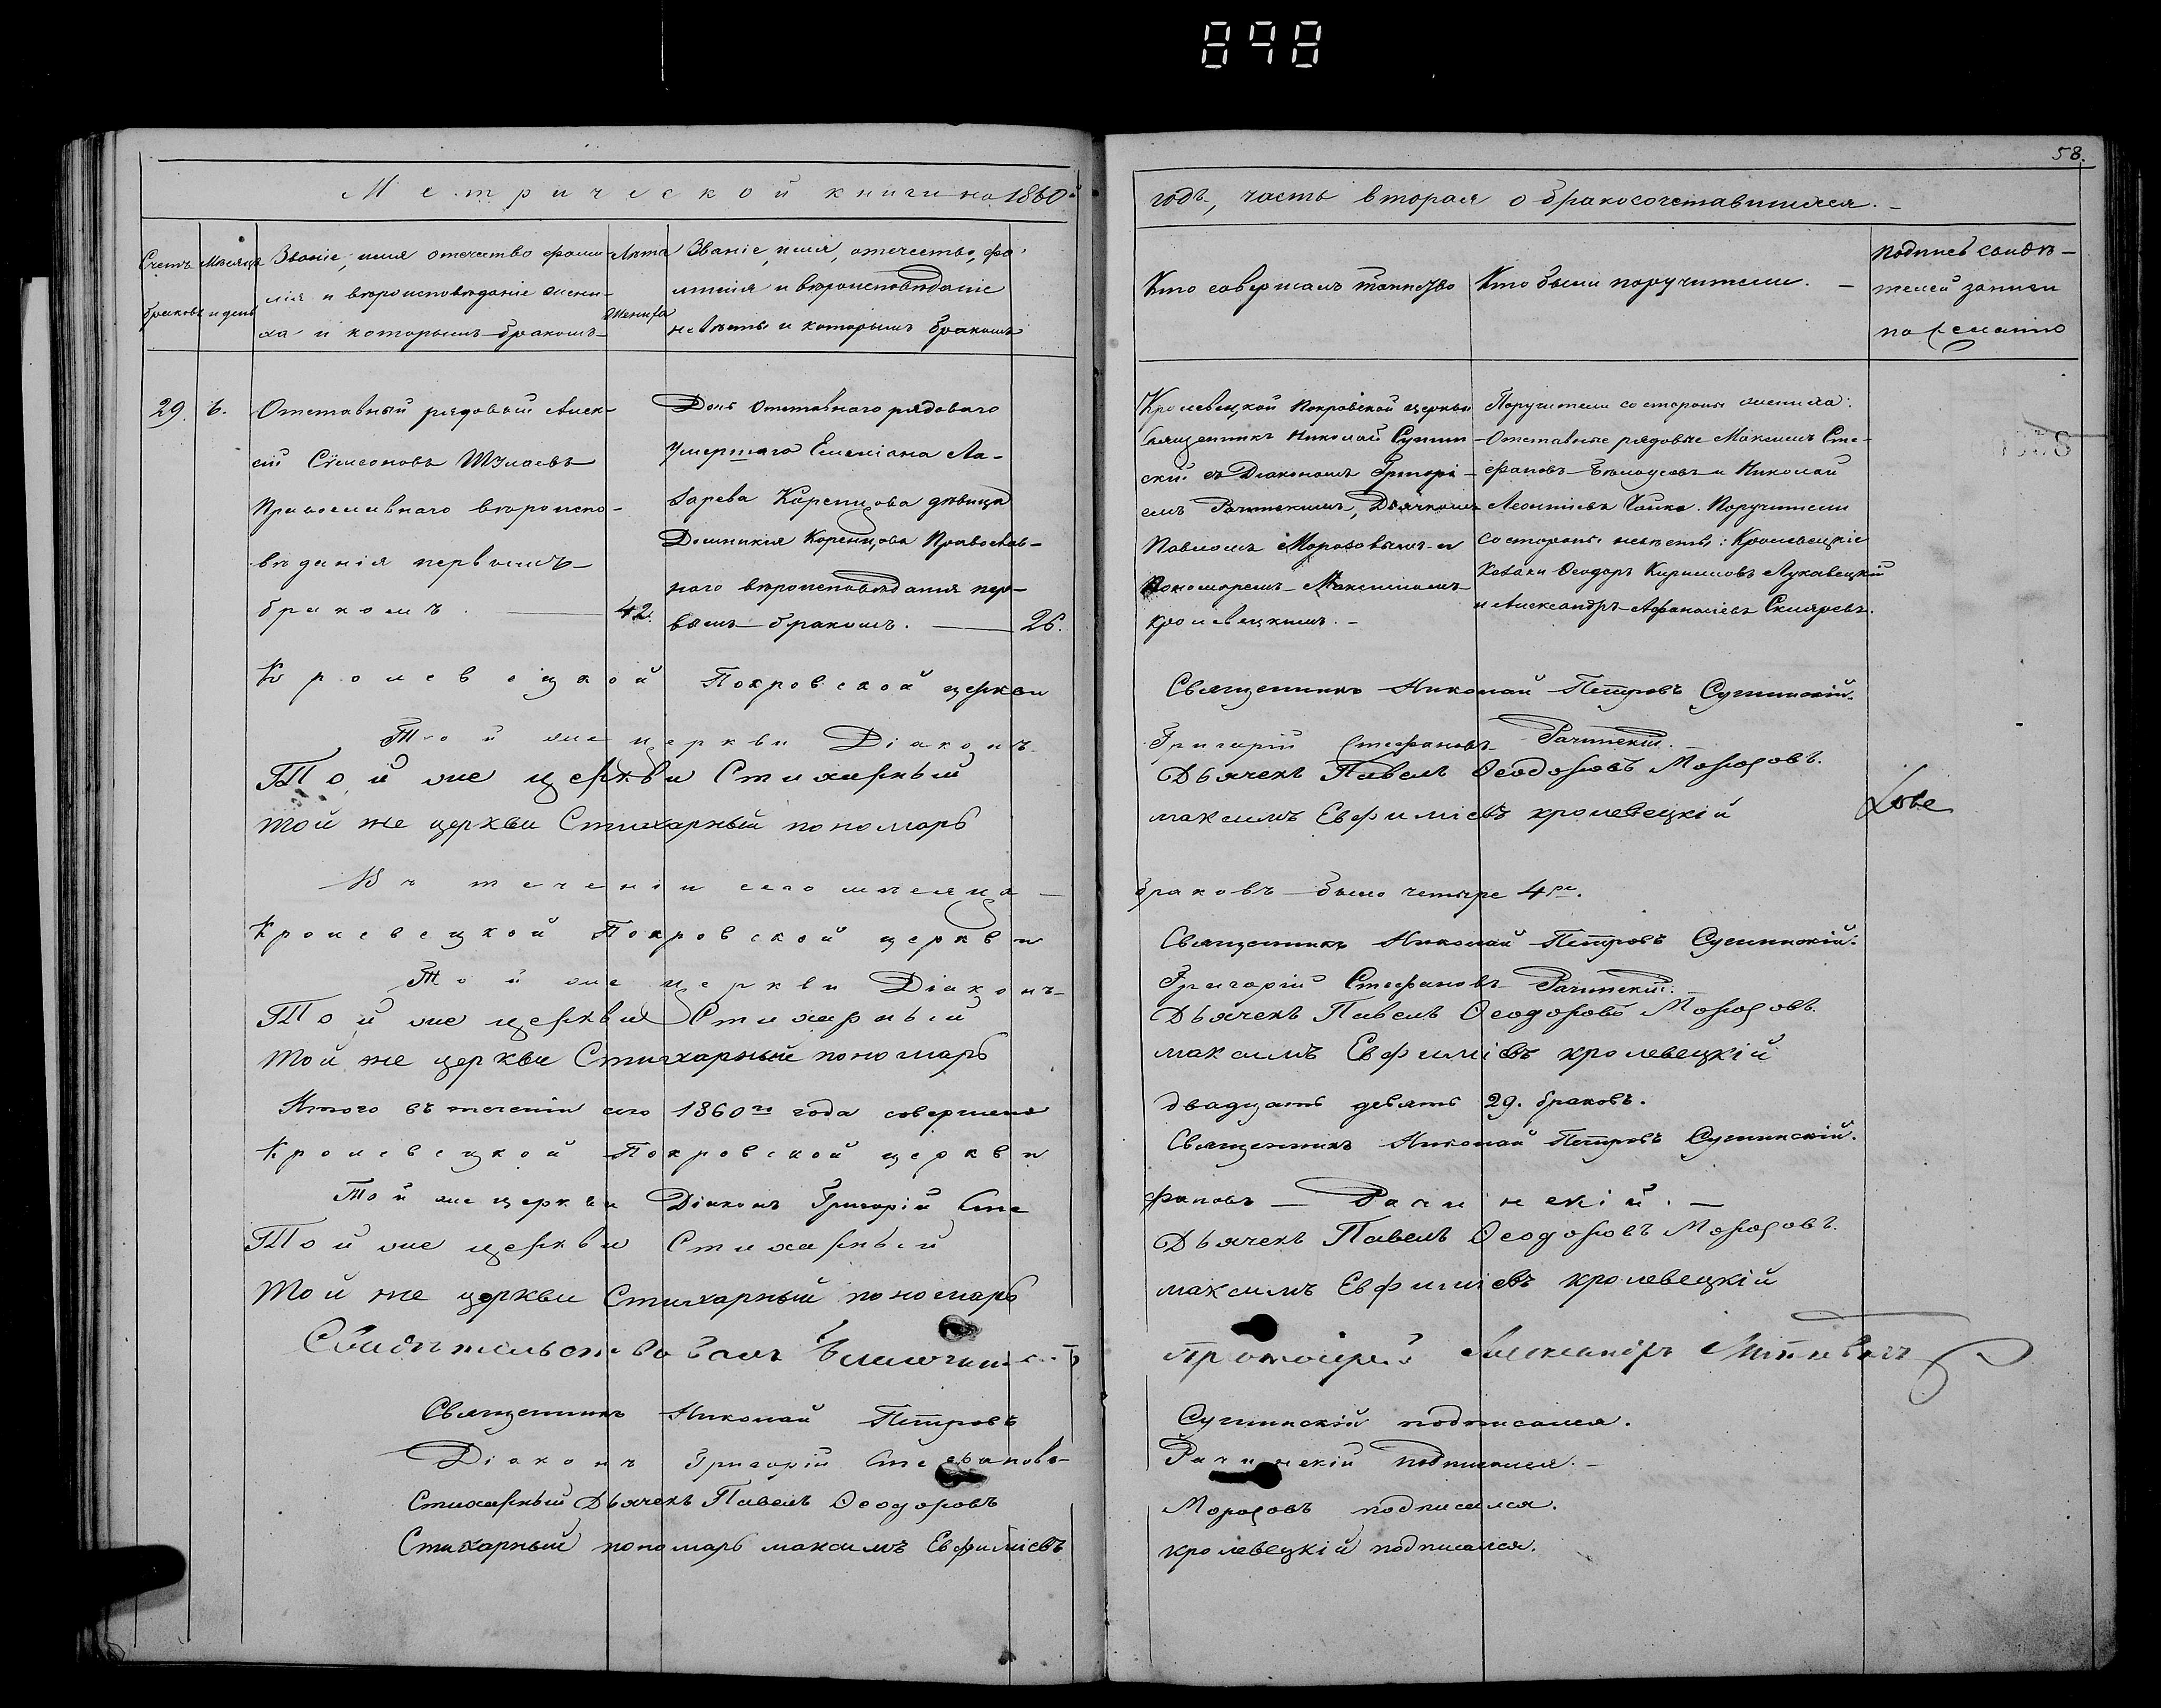 898
58.
Метрической книги на 1860й
годъ, часть вторая о бракосочетавшихся.
Счетъ браковъ
Мѣсяцъ и день
Званіе, имя отечество фами-
лія и вѣроисповѣданіе жени-
ха и которымъ бракомъ
Лѣта жениха
Званіе, имя, отечество, фа-
милія и вѣроисповѣданіе
невѣсты и которымъ бракомъ
Кто совершалъ таинство
Кто были поручители.
Подпись свидѣ-
телей записи
по желанію
29. 6.
Отставный рядовый Алек-
сій Сѵмеоновъ
Православнаго вѣроиспо-
вѣданія первымъ
бракомъ. 42.
Дочь отставного рядоваго
умершаго Емеліана Ла-
зарева Коренцова дѣвица
Домникія Коренцова Православ-
наго вѣроисповѣданія пер-
вымъ бракомъ. 26.
Кролевецкой Покровской церкви
Священникъ Николай Сугин-
скій съ Діакономъ Григорі-
емъ Рачинскимъ, Дьячкомъ
Павломъ Морозовымъ и
Пономаремъ Максимомъ
Кролевецкимъ.
Поручители со стороны жениха:
Отставные рядовые Максимъ Сте-
фановъ Бѣлоусовъ и Николай
Леонтіевъ Чайка. Поручители
со стороны невѣсты: Кролевецкіе
Козаки Ѳеодоръ Кирилловъ Лукавецкій
и Александръ Афанасіевъ Скляревъ.
Кролевецкой Покровской церкви Священникъ Николай Петровъ Сугинскій.
Той же церкви Діаконъ Григорій Стефановъ Рачинскій.
Той же церкви Стихарный Дьячекъ Павелъ Ѳеодоровъ Морозовъ.
той же церкви Стихарный пономарь максимъ Евфиміевъ кролевецкій
Въ теченіи сего мѣсяца браковъ было четыре 4ре.
Кролевецкой Покровской церкви Священникъ Николай Петровъ Сугинскій.
Той же церкви Діаконъ Григорій Стефановъ Рачинскій.
Той же церкви Стихарный Дьячекъ Павелъ Ѳеодоровъ Морозовъ.
той же церкви Стихарный пономарь максимъ Евфиміевъ кролевецкій
Итого въ теченіи сего 1860го года совершено двадцать девять 29. браковъ.
Кролевецкой Покровской церкви Священникъ Николай Петровъ Сугинскій.
Той же церкви Діаконъ Григорій Сте фановъ Рачинскій.
Той же церкви Стихарный Дьячекъ Павелъ Ѳеодоровъ Морозовъ.
той же церкви Стихарный пономарь максимъ Евфиміевъ кролевецкій
Свидѣтельствовалъ Благочинный Протоіерей Александръ
Священникъ Николай Петровъ Сугинскій подписался.
Діаконъ Григорій Стефановъ Рачинскій подписался.
Стихарный Дьячекъ Павелъ Ѳеодоровъ Морозовъ подписался.
Стихарный пономарь максимъ Евфиміевъ кролевецкій подписался.